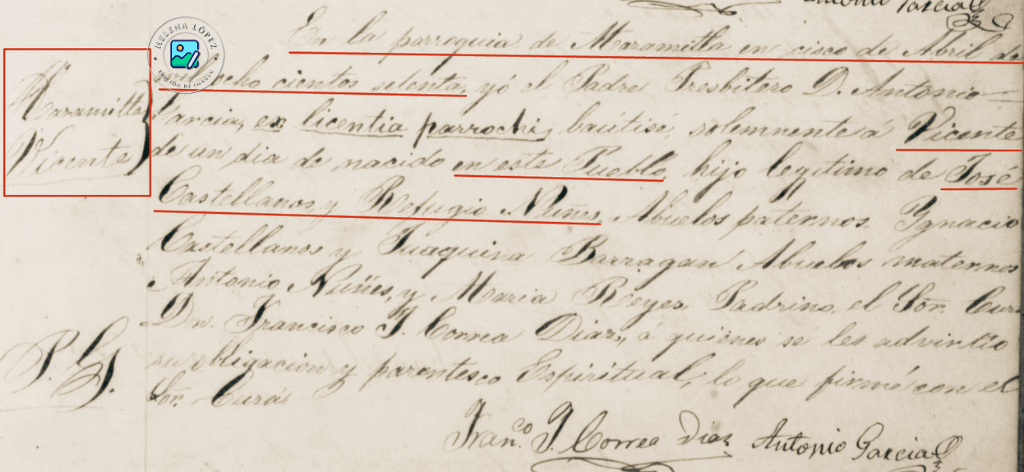 Antonio Garcia
HELENA LÓPEZ
EDICIÓN DE IMAGEN
Maramitla
Vicente
En la parroquia de Maramitla en cinco de Abril de
ocho cientos setenta, yó el Padre Presbitero D. Antonio
Garcia, ex licentia parrochi, bautisé solemnente á Vicente
de un dia de nacido en este Pueblo, hijo legitimo de José
Castellanos y Refugio Nuñes, Abuelos paternos Ygnacio
Castellanos y Juaquina Barragan Abuelos maternos
Antonio Nuñes, y Maria Reyes. Padrino el Sor. Cura
Dn. Francisco J. Correa Diaz, á quienes se les advirtio
su obligacion y parentesco Espiritual; lo que firmé con el
Sor. Curá
P. G.
Franco. J. Correa Diaz Antonio Garcia